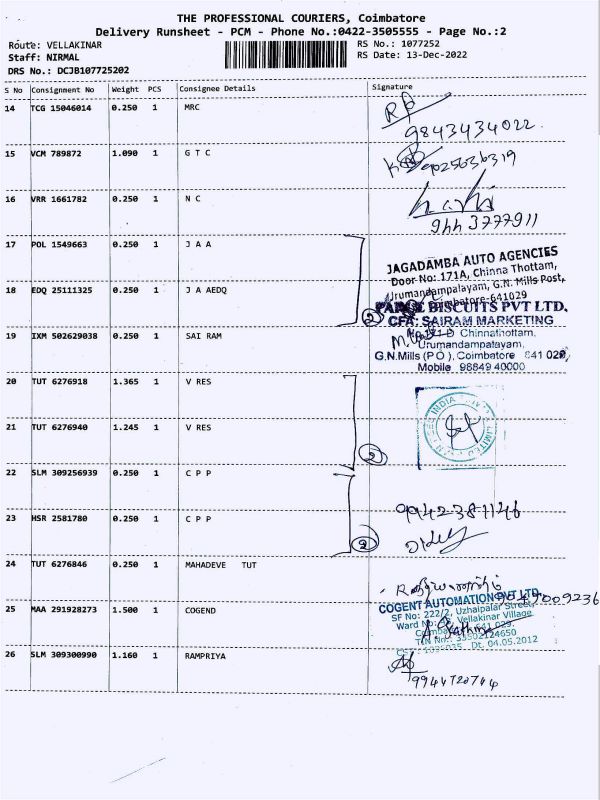 THE PROFESSIONAL COURIERS, Coimbatore
Delivery Runsheet - PCM - Phone No.:0422-3505555 - Page No.:2
Route: VELLAKINAR RS No.: 1077252
Staff: NIRMAL RS Date: 13-Dec-2022
DRS No.: DCJB107725202
S No Consignment No Weight PCS Consignee Details Signature
14 TCG 15046014 0.250 1 MRC
9843434022
15 VCM 789872 1.090 1 G T C
9025636319
16 VRR 1661782 0.250 1 N C
17 POL 1549663 0.250 1 J A A
JAGADAMBA AUTO AGENCIES
Door No: 171A, Chinna Thottam,
Urumandampalayam, G.N. Mills Post,
Coimbatore-641029
18 EDQ 25111325 0.250 1 J A AEDQ
2
BISCUITS PVT LTD.
CFA: SAIRAM MARKETING
19 IXM 502629038 0.250 1 SAI RAM
Chinnathottam,
Urumandampalayam,
G.N.Mills (P O ), Coimbatore 641 029,
Mobile 98849 40000
20 TUT 6276918 1.365 1 V RES
21 TUT 6276940 1.245 1 V RES
2
INDIA LIMITED
22 SLM 309256939 0.250 1 C P P
23 HSR 2581780 0.250 1 C P P
2
9942381146
24 TUT 6276846 0.250 1 MAHADEVE TUT
25 MAA 291928273 1.500 1 COGEND
COGENT AUTOMATION PVT LTD
SF No: 222/2, Uzhaipalar Street,
Ward No: Vellakinar Village
641 029.
Dt. 04.05.2012
26 SLM 309300990 1.160 1 RAMPRIYA